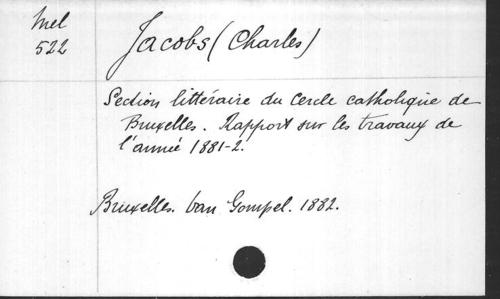 Mel
522
Jacobs (Charles)
Section littéraire du Cercle catholique de
Bruxelles. Rapport sur les travaux de
l'année 1881-2.
Bruxelles. Van Gompel. 1882.